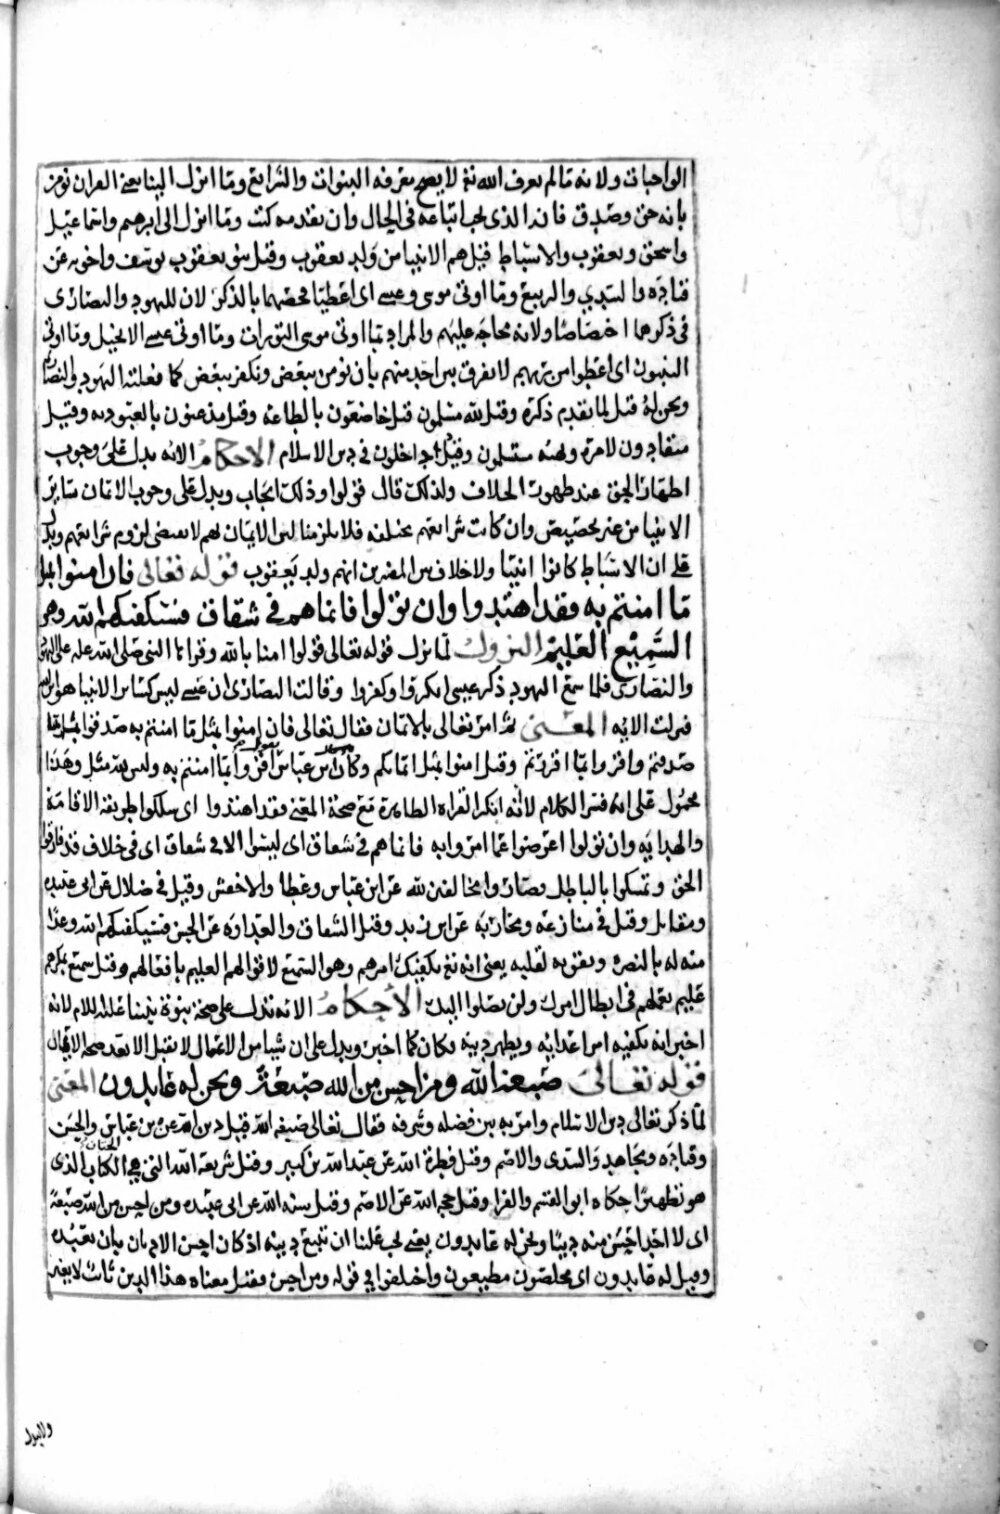 الواجبات ولانه ما لم يعرف الله تع لا يصح معرفه النبوات والشرائع وما انزل الينا يعني القران نومن
بانه حق وصدق فانه الذي يجب اتباعه في الحال وان تقدمه كتب وما انزل الى ابرهيم واسماعيل
واسحق ويعقوب والاسباط قيل هم الانبيا من ولد يعقوب وقيل بنو يعقوب يوسف واخوته عن
قتاده والسدي والربيع وما اوتي موسى وعيسى اي اعطيا خصهما بالذكر لان لليهود والنصارى
في ذكرهما اختصاصا ولانه محاجه عليهم والمراد بما اوتي موسى التورات وما اوتي عيسى الانجيل وما اوتي
النبيون اي اعطوا من ربهم لا نفرق بين احد منهم بان نومن ببعض ونكفر ببعض كما فعلته اليهود والنصارى
ونحن له قيل لما تقدم ذكره وقيل لله مسلمون قيل خاضعون بالطاعه وقيل مذعنون بالعبوديه وقيل
منقادون لامره ونهيه مستسلمون وقيل داخلون في دين الاسلام الاحكام الايه تدل على وجوب
اظهار الحق عند ظهور الخلاف ولذلك قال قولوا وذلك ايجاب ويدل على وجوب الايمان بسائر
الانبيا من غير تخصيص وان كانت شرائعهم مختلفه فلا يلزمنا لان الايمان بهم لا يقتضي لزوم شرائعهم ويدل
على ان الاسباط كانوا انبيا ولا خلاف بين المفسرين انهم ولد يعقوب قوله تعالى فان امنوا بمثل
ما امنتم به فقد اهتدوا وان تولوا فانما هم في شقاق فسيكفيكهم الله وهو
السميع العليم النزول لما نزل قوله تعالى قولوا امنا بالله وقراها النبي صلى الله عليه على اليهود
والنصارى فلما سمع اليهود ذكر عيسى انكروا وكفروا وقالت النصارى ان عيسى ليس كسائر الانبيا هو ابن الله
فنزلت الايه المعنى ثم امر تعالى بالايمان فقال تعالى فان امنوا بمثل ما امنتم به صدقوا بمثل ما
صدقتم واقروا بما اقررتم وقيل امنوا بمثل ايمانكم وكان ابن عباس يقول اقروا بما امنتم به وليس لله مثل وهذا
محمول على انه فسر الكلام لا انه انكر القراه الظاهرة مع صحة المعنى فقد اهتدوا اي سلكوا طريقه الاقامة
والهدايه وان تولوا اعرضوا عما امروا به فانما هم في شقاق اي ليسوا الا في شقاق اي في خلاف قد فارقوا
الحق وتمسكوا بالباطل وصاروا مخالفين لله عن ابن عباس وعطا والاخفش وقيل في ضلال عن ابي عبيده
ومقاتل وقيل في منازعة ومحاربه عن ابن زيد وقيل الشقاق والعداوة عن الحسن فسيكفيكهم الله وعدا
منه له بالنصره وتقويه لقلبه يعني انه تع يكفيك امرهم وهو السميع لاقوالهم العليم بافعالهم وقيل سميع بمكرهم
عليم بعملهم في ابطال امرك ولن يصلوا اليك الاحكام الايه تدل على صحة نبوة نبينا عليه السلام لانه
اخبر انه يكفيه امر اعدائه ويظهر دينه وكان كما اخبر ويدل على ان شيا من الاعمال لا يقبل الا بعد صحه الايمان
قوله تعالى صبغة الله ومن احسن من الله صبغة ونحن له عابدون المعنى
لما ذكر تعالى دين الاسلام وامر به بين فضله وشرفه فقال تعالى صبغه الله قيل دين الله عن ابن عباس والحسن
وقتاده ومجاهد والسدي والاصم وقيل فطرة الله عن عبد الله بن كثير وقيل شريعه الله التي هي الختان الذي
هو تطهير حكاه ابو القسم والفرا وقيل حجه الله عن الاصم وقيل سنه الله عن ابي عبيده ومن احسن من الله صبغة
اي لا احد احسن منه دينا ونحن له عابدون يعني يجب علينا ان نتبع دينه اذ كان احسن الاديان بان نعبده
وقيل له عابدون اي مخلصون مطيعون واختلفوا في قوله ومن احسن فقيل معناه هذا الدين ثابت لا يغير
ولايزول